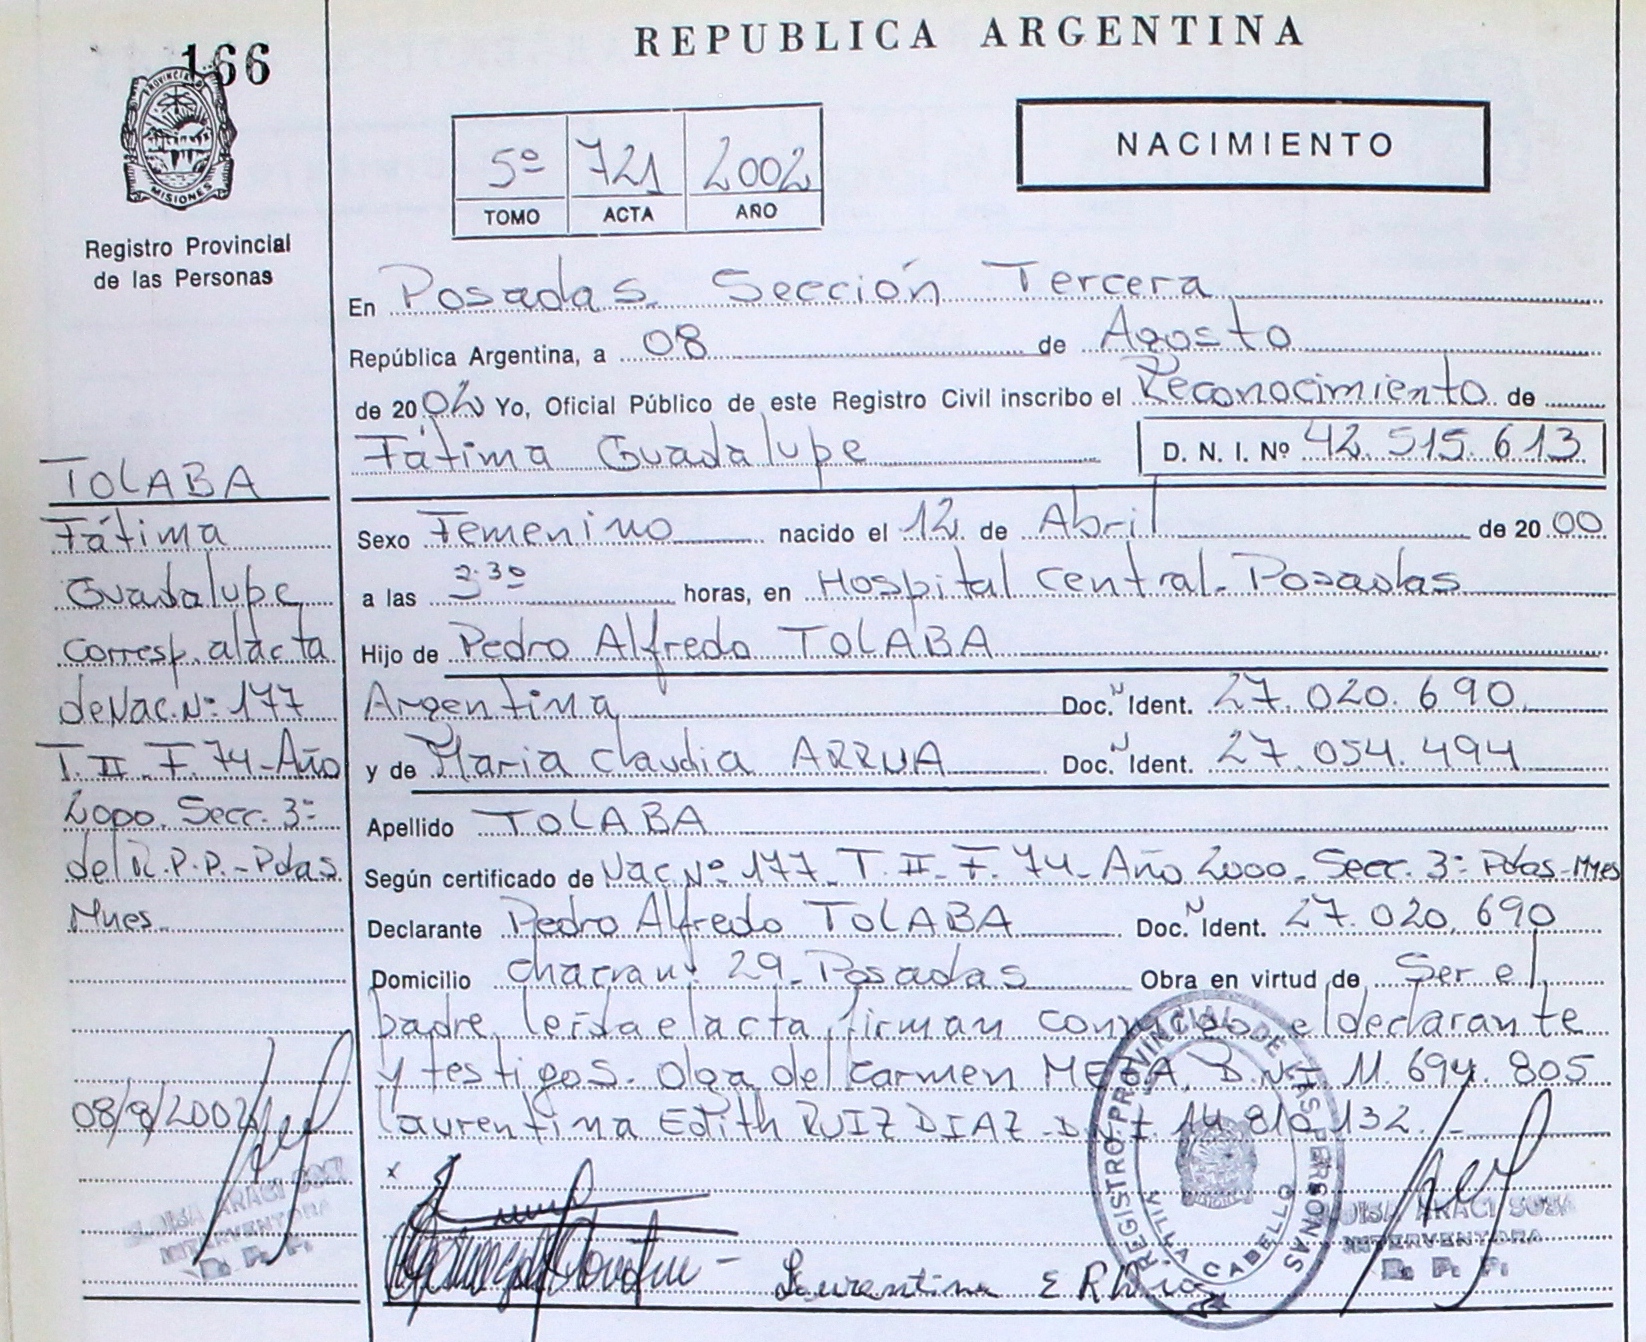 REPUBLICA ARGENTINA
166
PROVINCIA DE MISIONES
Registro Provincial
de las Personas
5º 721 2002
TOMO ACTA AÑO
NACIMIENTO
En Posadas. Sección Tercera
República Argentina, a 08 de Agosto
de 2002 Yo, Oficial Público de este Registro Civil inscribo el Reconocimiento de
Fátima Guadalupe D. N. I. Nº 42.515.613
Sexo Femenino nacido el 12 de Abril de 2000
a las 3:30 horas, en Hospital Central. Posadas
Hijo de Pedro Alfredo TOLABA
Argentina Doc. Ident. 27.020.690
y de Maria Claudia ARRUA Doc. Ident. 27.054.494
Apellido TOLABA
Según certificado de Nac. Nº 177. T. II. F. 74. Año 2000. Secc. 3º Pdas-Mnes
Declarante Pedro Alfredo TOLABA Doc. Ident. 27.020.690
Domicilio chacra nº 29. Posadas Obra en virtud de Ser el
padre, leída el acta, firman conmigo el declarante
y testigos. Olga del Carmen D.N.I. 11.694.805
Laurentina Edith RUIZ DIAZ - D.N.I. 14.810.132.-
x
Laurentina E Ruiz
TOLABA
Fátima
Guadalupe
corresp. al acta
de Nac. Nº 177
T. II. F. 74-Año
2000. Secc. 3º
del R.P.P.-Pdas.
Mnes.
08/8/2002
INTERVENTORA
REGISTRO PROVINCIAL DE LAS PERSONAS
VILLA CABELLO
ARACI SOSA
INTERVENTORA